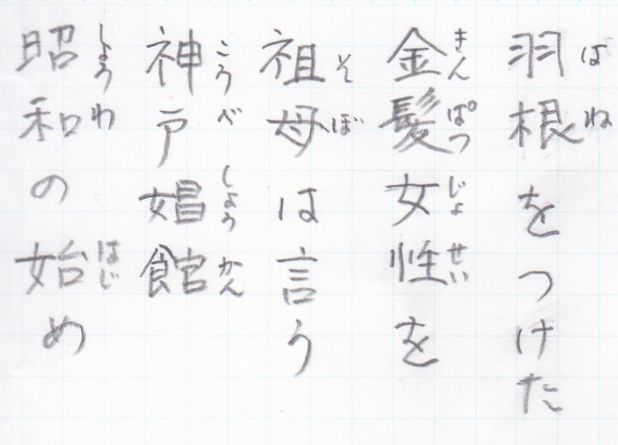 羽根をつけた
金髪女性を
祖母は言う
神戸娼館
昭和の始め
ばね
きんぱつじょせい
そぼ
こうべしょうかん
しょうわ はじ